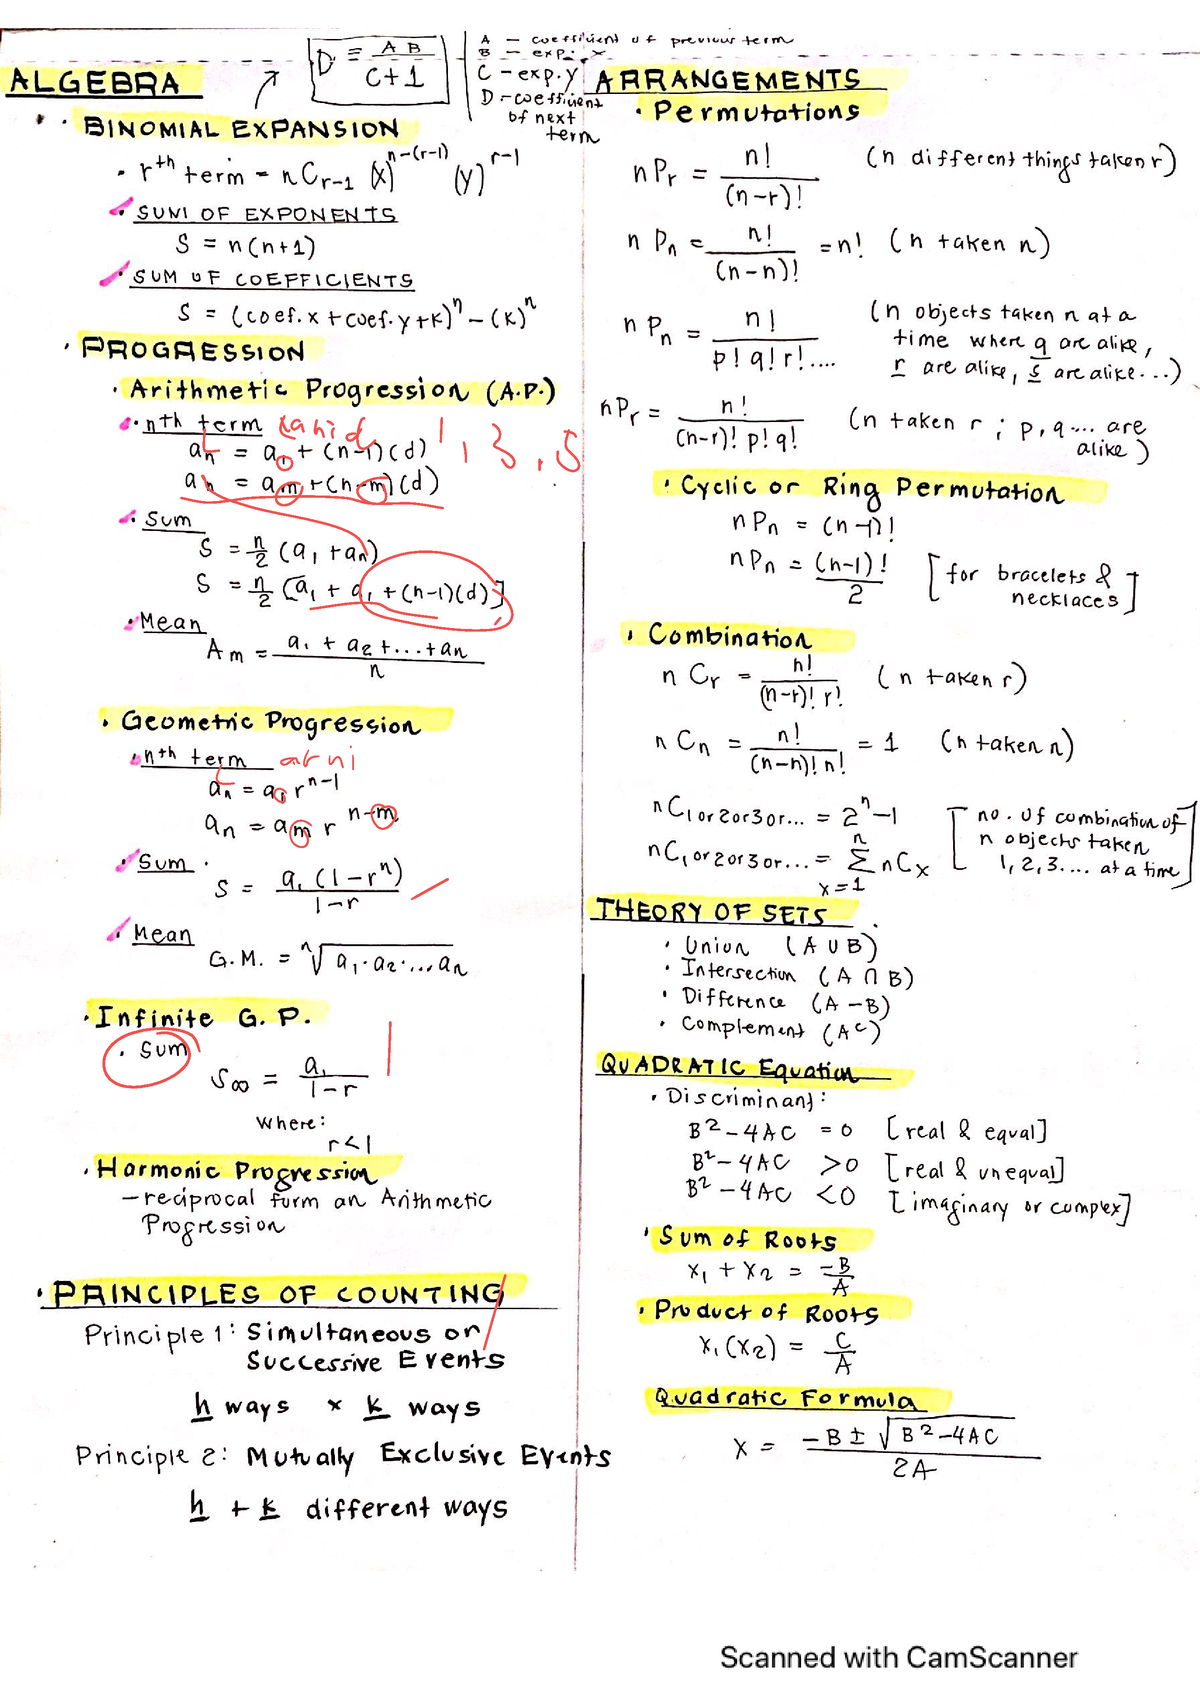 D = AB / C+1
A – coefficient of previous term
B – exp. x
C – exp. y
D – coefficient
of next
term
ALGEBRA
• BINOMIAL EXPANSION
• rth term = nCr-1 (x)^n-(r-1) (y)^r-1
• SUM OF EXPONENTS
S = n(n+1)
• SUM OF COEFFICIENTS
S = (coef. x + coef. y + k)^n – (k)^n
• PROGRESSION
• Arithmetic Progression (A.P.)
• nth term
an = a1 + (n-1)(d)
1, 3, 5
an = am + (n-m)(d)
• Sum
S = n/2 (a1 + an)
S = n/2 [a1 + a1 + (n-1)(d)]
• Mean
Am = a1 + a2 + ... + an / n
• Geometric Progression
• nth term
an = a1 r^n-1
an = am r^n-m
• Sum
S = a1 (1-r^n) / 1-r
• Mean
G.M. = n√a1·a2·...an
• Infinite G.P.
• Sum
S∞ = a1 / 1-r
where:
r<1
• Harmonic Progression
– reciprocal form an Arithmetic
Progression
• PRINCIPLES OF COUNTING
Principle 1: Simultaneous or
Successive Events
h ways × k ways
Principle 2: Mutually Exclusive Events
h + k different ways
ARRANGEMENTS
• Permutations
nPr = n! / (n-r)! (n different things taken r)
nPn = n! / (n-n)! = n! (n taken n)
nPn = n! / p! q! r!.... (n objects taken n at a
time where q are alike,
r are alike, s are alike...)
nPr = n! / (n-r)! p! q! (n taken r ; p, q.... are
alike)
• Cyclic or Ring Permutation
nPn = (n-1)!
nPn = (n-1)! / 2 [for bracelets &
necklaces]
• Combination
nCr = n! / (n-r)! r! (n taken r)
nCn = n! / (n-n)! n! = 1 (n taken n)
nC1 or 2 or 3 or... = 2^n – 1
nC1 or 2 or 3 or... = n Σ x=1 nCx
[no. of combination of
n objects taken
1, 2, 3.... at a time]
THEORY OF SETS
• Union (A ∪ B)
• Intersection (A ∩ B)
• Difference (A – B)
• Complement (A^c)
QUADRATIC Equation
• Discriminant:
B² – 4AC = 0 [real & equal]
B² – 4AC >0 [real & unequal]
B² – 4AC <0 [imaginary or complex]
• Sum of Roots
x1 + x2 = -B / A
• Product of Roots
x1(x2) = C / A
Quadratic Formula
x = -B ± √B² – 4AC / 2A
Scanned with CamScanner